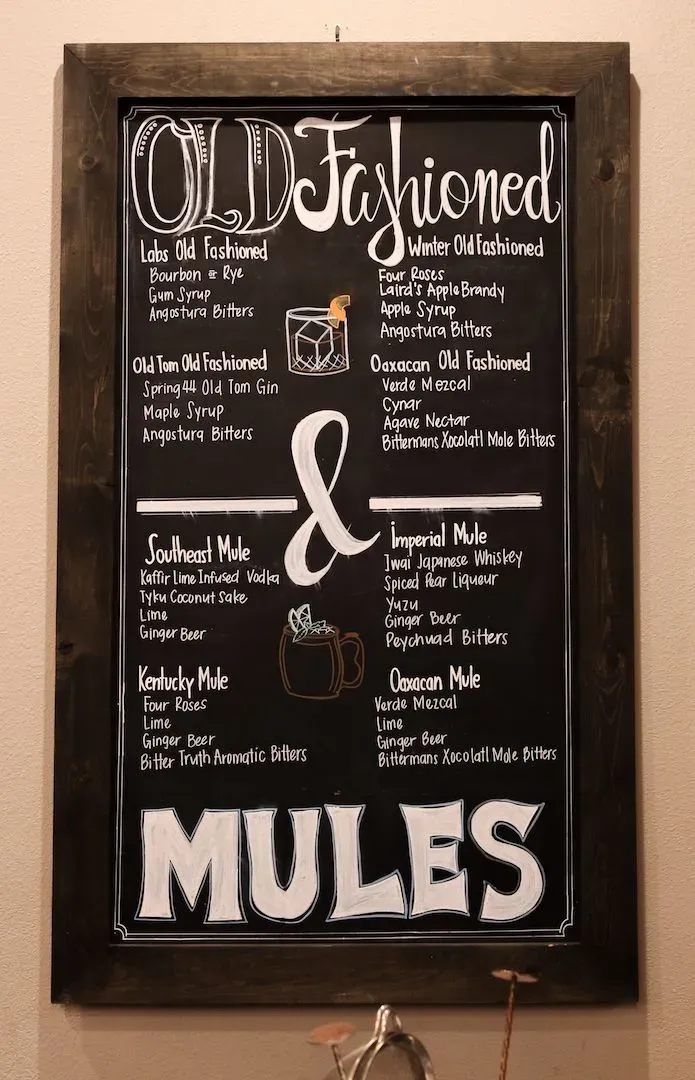 OLD Fashioned
Labs Old Fashioned
Bourbon or Rye
Gum Syrup
Angostura Bitters
Winter Old Fashioned
Four Roses
Laird's Apple Brandy
Apple Syrup
Angostura Bitters
Old Tom Old Fashioned
Spring 44 Old Tom Gin
Maple Syrup
Angostura Bitters
Oaxacan Old Fashioned
Verde Mezcal
Cynar
Agave Nectar
Bittermans Xocolatl Mole Bitters
&
Southeast Mule
Kaffir Lime Infused Vodka
Tyku Coconut Sake
Lime
Ginger Beer
Imperial Mule
Iwai Japanese Whiskey
Spiced Pear Liqueur
Yuzu
Ginger Beer
Peychuad Bitters
Kentucky Mule
Four Roses
Lime
Ginger Beer
Bitter Truth Aromatic Bitters
Oaxacan Mule
Verde Mezcal
Lime
Ginger Beer
Bittermans Xocolatl Mole Bitters
MULES